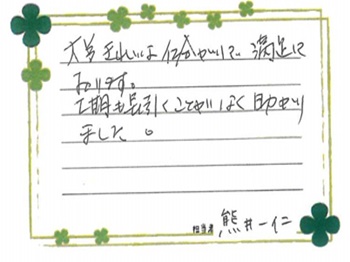 大変きれいな仕上がりで満足に
おります。
工期も長引くことがなく助かり
ました。
担当者 熊井一仁